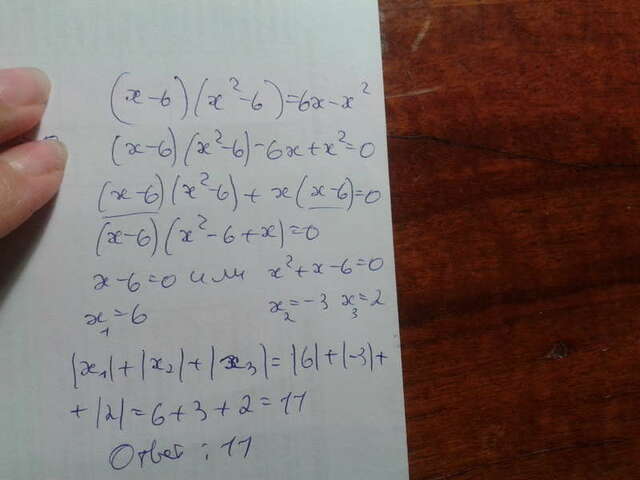 (x-6)(x²-6)=6x-x²
(x-6)(x²-6)-6x+x²=0
(x-6)(x²-6)+x(x-6)=0
(x-6)(x²-6+x)=0
x-6=0 или x²+x-6=0
x₁=6 x₂=-3 x₃=2
|x₁|+|x₂|+|x₃|=|6|+|-3|+
+|2|=6+3+2=11
Ответ: 11